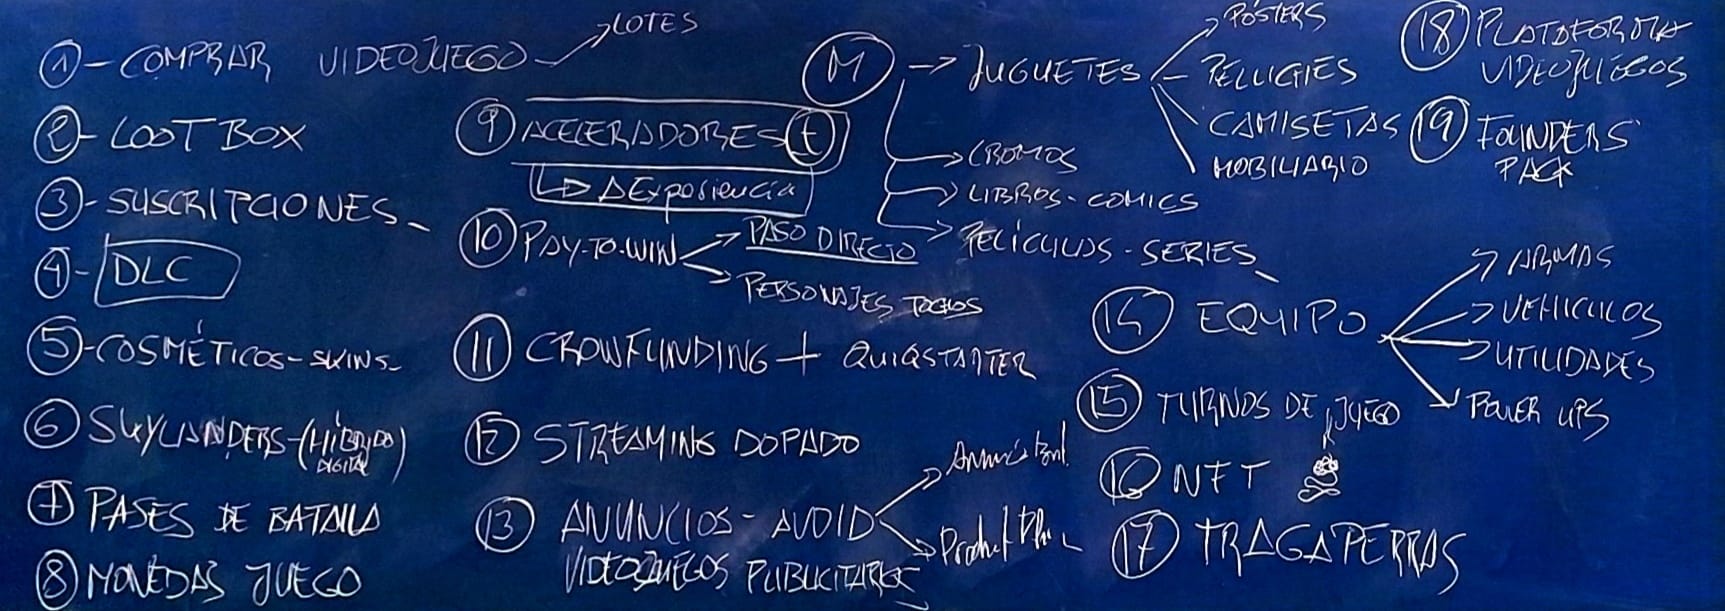 1 - COMPRAR VIDEOJUEGO → LOTES
2 - LOOT BOX
3 - SUSCRIPCIONES
4 - DLC
5 - COSMÉTICOS - SKINS
6 SKYLANDERS - (HÍBRIDO DIGITAL)
7 PASES DE BATALLA
8 MONEDAS JUEGO
9 ACELERADORES (t)
↳ ΔExperiencia
10 PAY-TO-WIN
→ PASO DIRECTO
→ PERSONAJES TOCHOS
11 CROWFUNDING + QUIQSTARTER
12 STREAMING DOPADO
13 ANUNCIOS - AVOID
VIDEOJUEGOS PUBLICITARIOS
→ Product
M → JUGUETES
PÓSTERS
PELUCHES
CAMISETAS
MOBILIARIO
→ CROMOS
→ LIBROS - COMICS
→ PELÍCULAS - SERIES
14 EQUIPO
→ ARMAS
→ VEHICULOS
→ UTILIDADES
→ POWER UPS
15 TURNOS DE JUEGO
16 NFT
17 TRAGAPERRAS
18 PLATAFORMA
VIDEOJUEGOS
19 FOUNDERS
PACK